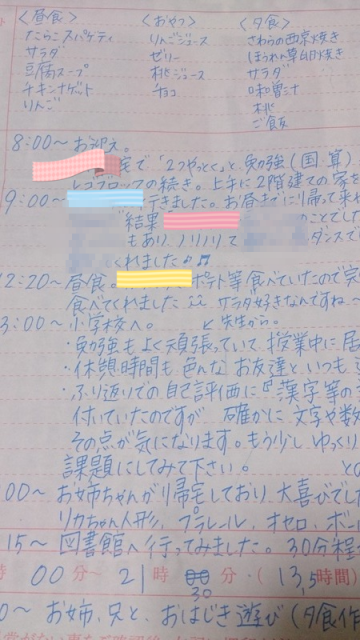 <昼食> <おやつ> <夕食>
たらこスパゲティ りんごジュース さわらの西京焼き
サラダ ゼリー ほうれん草卵焼き
豆腐スープ 桃ジュース サラダ
チキンナゲット チョコ 味噌汁
りんご 桃
ご飯
8:00〜お迎え。
で「2つやっとく」と勉強(国算)
レゴブロックの続き。上手に2階建ての家を
9:00〜 行きました。お昼までに帰って来れ
結果 のことでし
もあり、ノリノリで ダンスで
くれました♪♬
12:20〜昼食。 ポテト等食べていたので完
食べてくれました サラダ好きなんですね
3:00〜小学校へ。 ↙先生から。
・勉強もよく頑張っていて、授業中に居
・休憩時間も色んなお友達といつも
・ふり返りでの自己評価に『漢字等の
付いていたのですが 確かに文字や数
その点が気になります。もう少しゆっくり
課題にしてみて下さい。 との
00〜 お姉ちゃんが帰宅しており、大喜びでし
リカちゃん人形、プラレール、オセロ、ボー
15〜 図書館へ行ってみました。30分程
時 00分〜21時 30分・(13,5時間)
0〜 お姉、兄と、おはじき遊び(夕食作